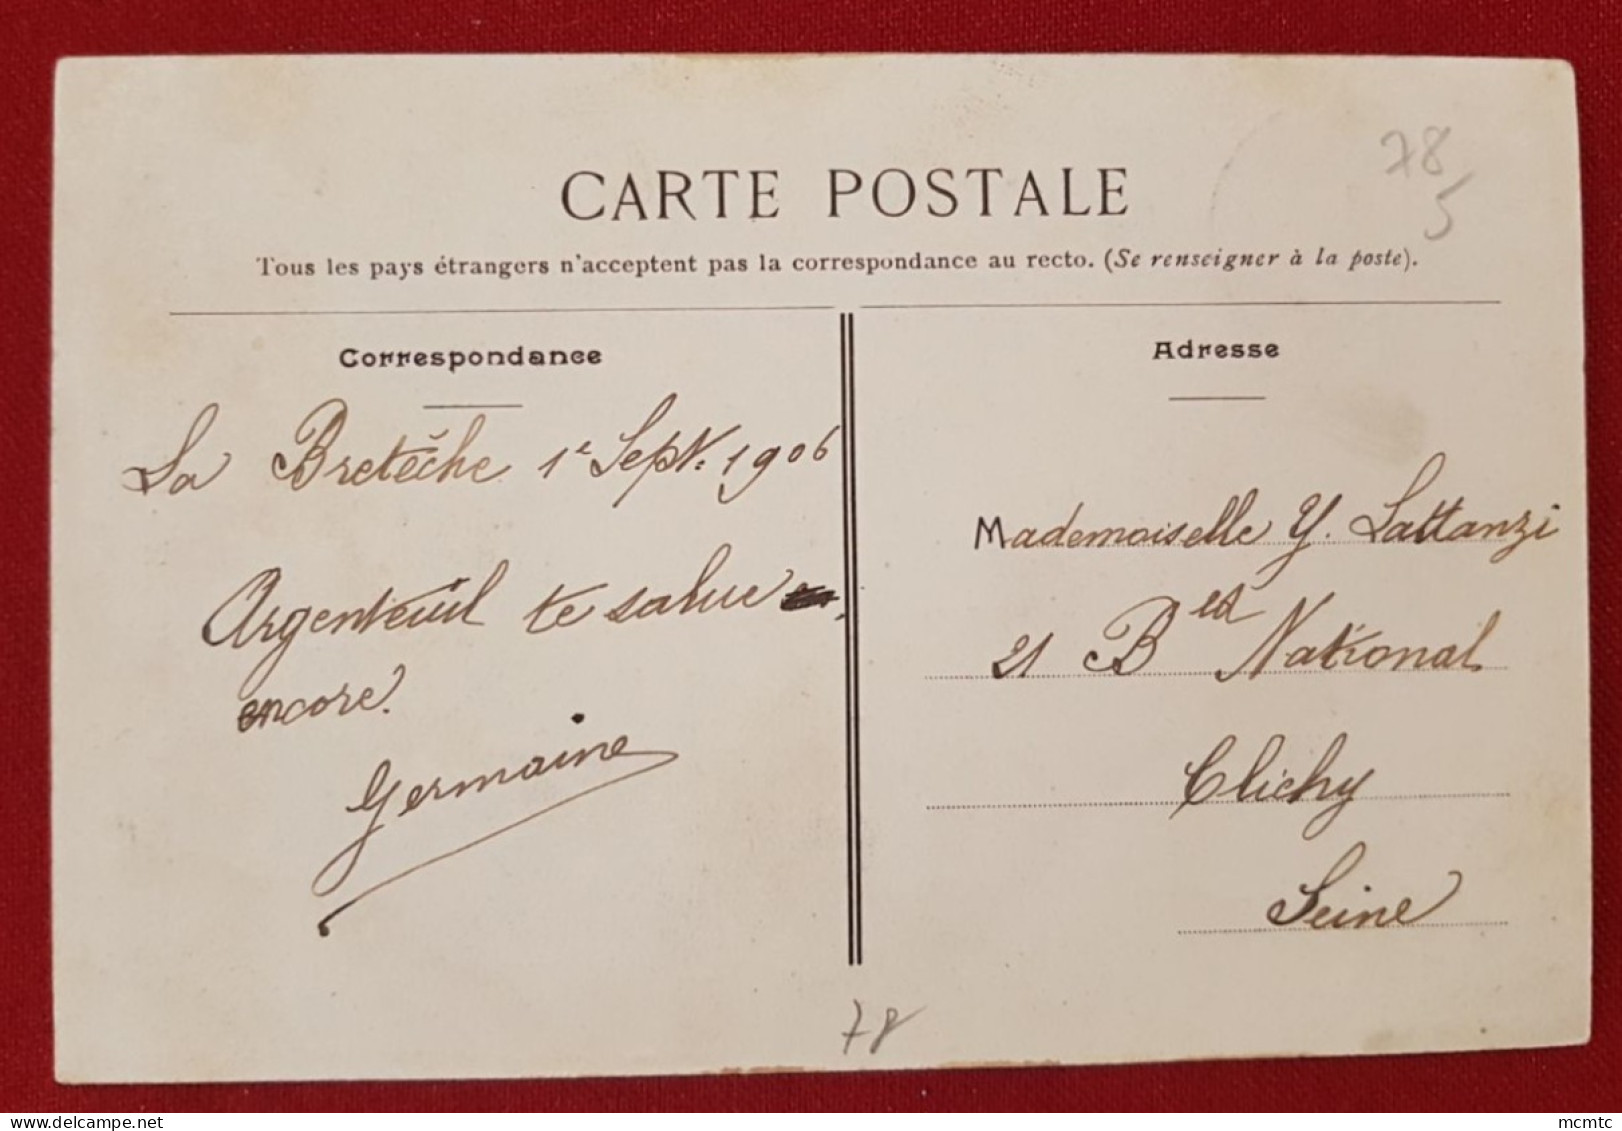 CARTE POSTALE
Tous les pays étrangers n'acceptent pas la correspondance au recto. (Se renseigner à la poste).
Correspondance
La Bretêche 1e Sept. 1906
Argenteuil te salue
encore.
Germaine
Adresse
Mademoiselle Y. Lattanzi
21 Bed National
Clichy
Seine
78
5
78
www.delcampe.net
mcmtc